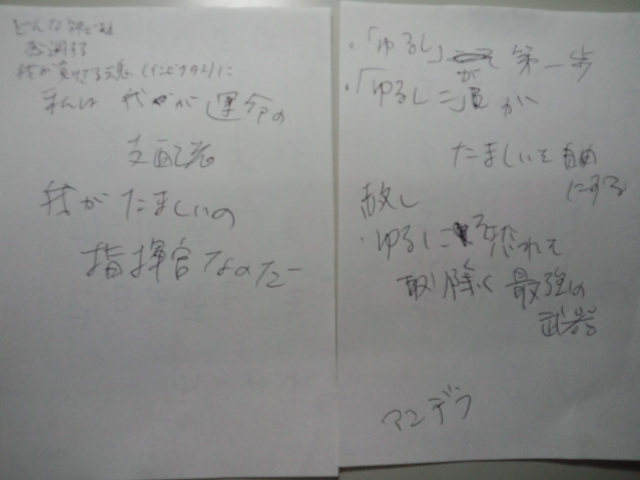 どんな神であれ
感謝する
我が負けざる魂(インビクタス)に
私は 我が 運命の
支配者
我が たましいの
指揮官 なのだー
・「ゆるし」が 第一歩
・「ゆるしこ」が
たましいを 自由
にする
故し
・ゆるしこそ 恐れを
取り除く 最強の
武器
マンデラ